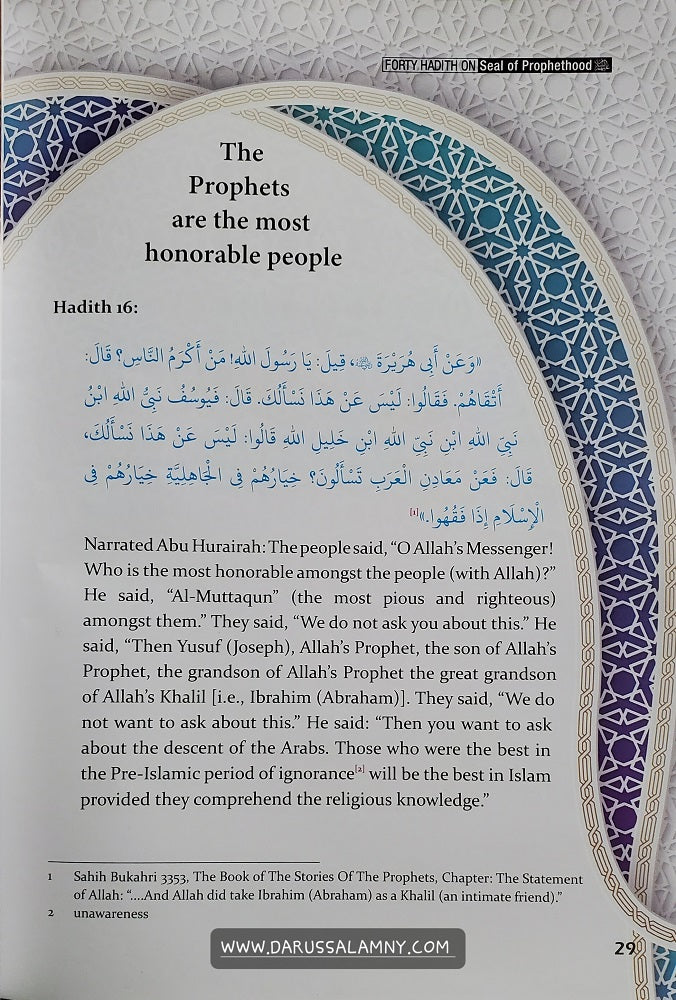 FORTY HADITH ON Seal of Prophethood ﷺ
The
Prophets
are the most
honorable people
Hadith 16:
«وَعَنْ أَبِي هُرَيْرَةَ ؓ، قِيلَ: يَا رَسُولَ اللهِ! مَنْ أَكْرَمُ النَّاسِ؟ قَالَ:
أَتْقَاهُمْ. فَقَالُوا: لَيْسَ عَنْ هَذَا نَسْأَلُكَ. قَالَ: فَيُوسُفُ نَبِيُّ اللهِ ابْنُ
نَبِيِّ اللهِ ابْنِ نَبِيِّ اللهِ ابْنِ خَلِيلِ اللهِ قَالُوا: لَيْسَ عَنْ هَذَا نَسْأَلُكَ،
قَالَ: فَعَنْ مَعَادِنِ الْعَرَبِ تَسْأَلُونَ؟ خِيَارُهُمْ فِي الْجَاهِلِيَّةِ خِيَارُهُمْ فِي
الْإِسْلَامِ إِذَا فَقُهُوا.»[1]
Narrated Abu Hurairah: The people said, “O Allah’s Messenger!
Who is the most honorable amongst the people (with Allah)?”
He said, “Al-Muttaqun” (the most pious and righteous)
amongst them.” They said, “We do not ask you about this.” He
said, “Then Yusuf (Joseph), Allah’s Prophet, the son of Allah’s
Prophet, the grandson of Allah’s Prophet the great grandson
of Allah’s Khalil [i.e., Ibrahim (Abraham)]. They said, “We do
not want to ask about this.” He said: “Then you want to ask
about the descent of the Arabs. Those who were the best in
the Pre-Islamic period of ignorance[2] will be the best in Islam
provided they comprehend the religious knowledge.”
1 Sahih Bukahri 3353, The Book of The Stories Of The Prophets, Chapter: The Statement
of Allah: “....And Allah did take Ibrahim (Abraham) as a Khalil (an intimate friend).”
2 unawareness
WWW.DARUSSALAMNY.COM
29